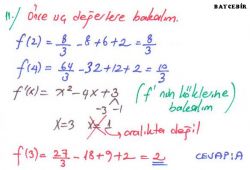 BAYCEBİR
11.) Önce uç değerlere bakalım.
f(2) = 8/3 - 8 + 6 + 2 = 8/3
f(4) = 64/3 - 32 + 12 + 2 = 10/3
f'(x) = x² - 4x + 3 (f' nün köklerine
-3 -1 bakalım
x=3 x=1 → aralıkta değil
f(3) = 27/3 - 18 + 9 + 2 = 2 CEVAP: A